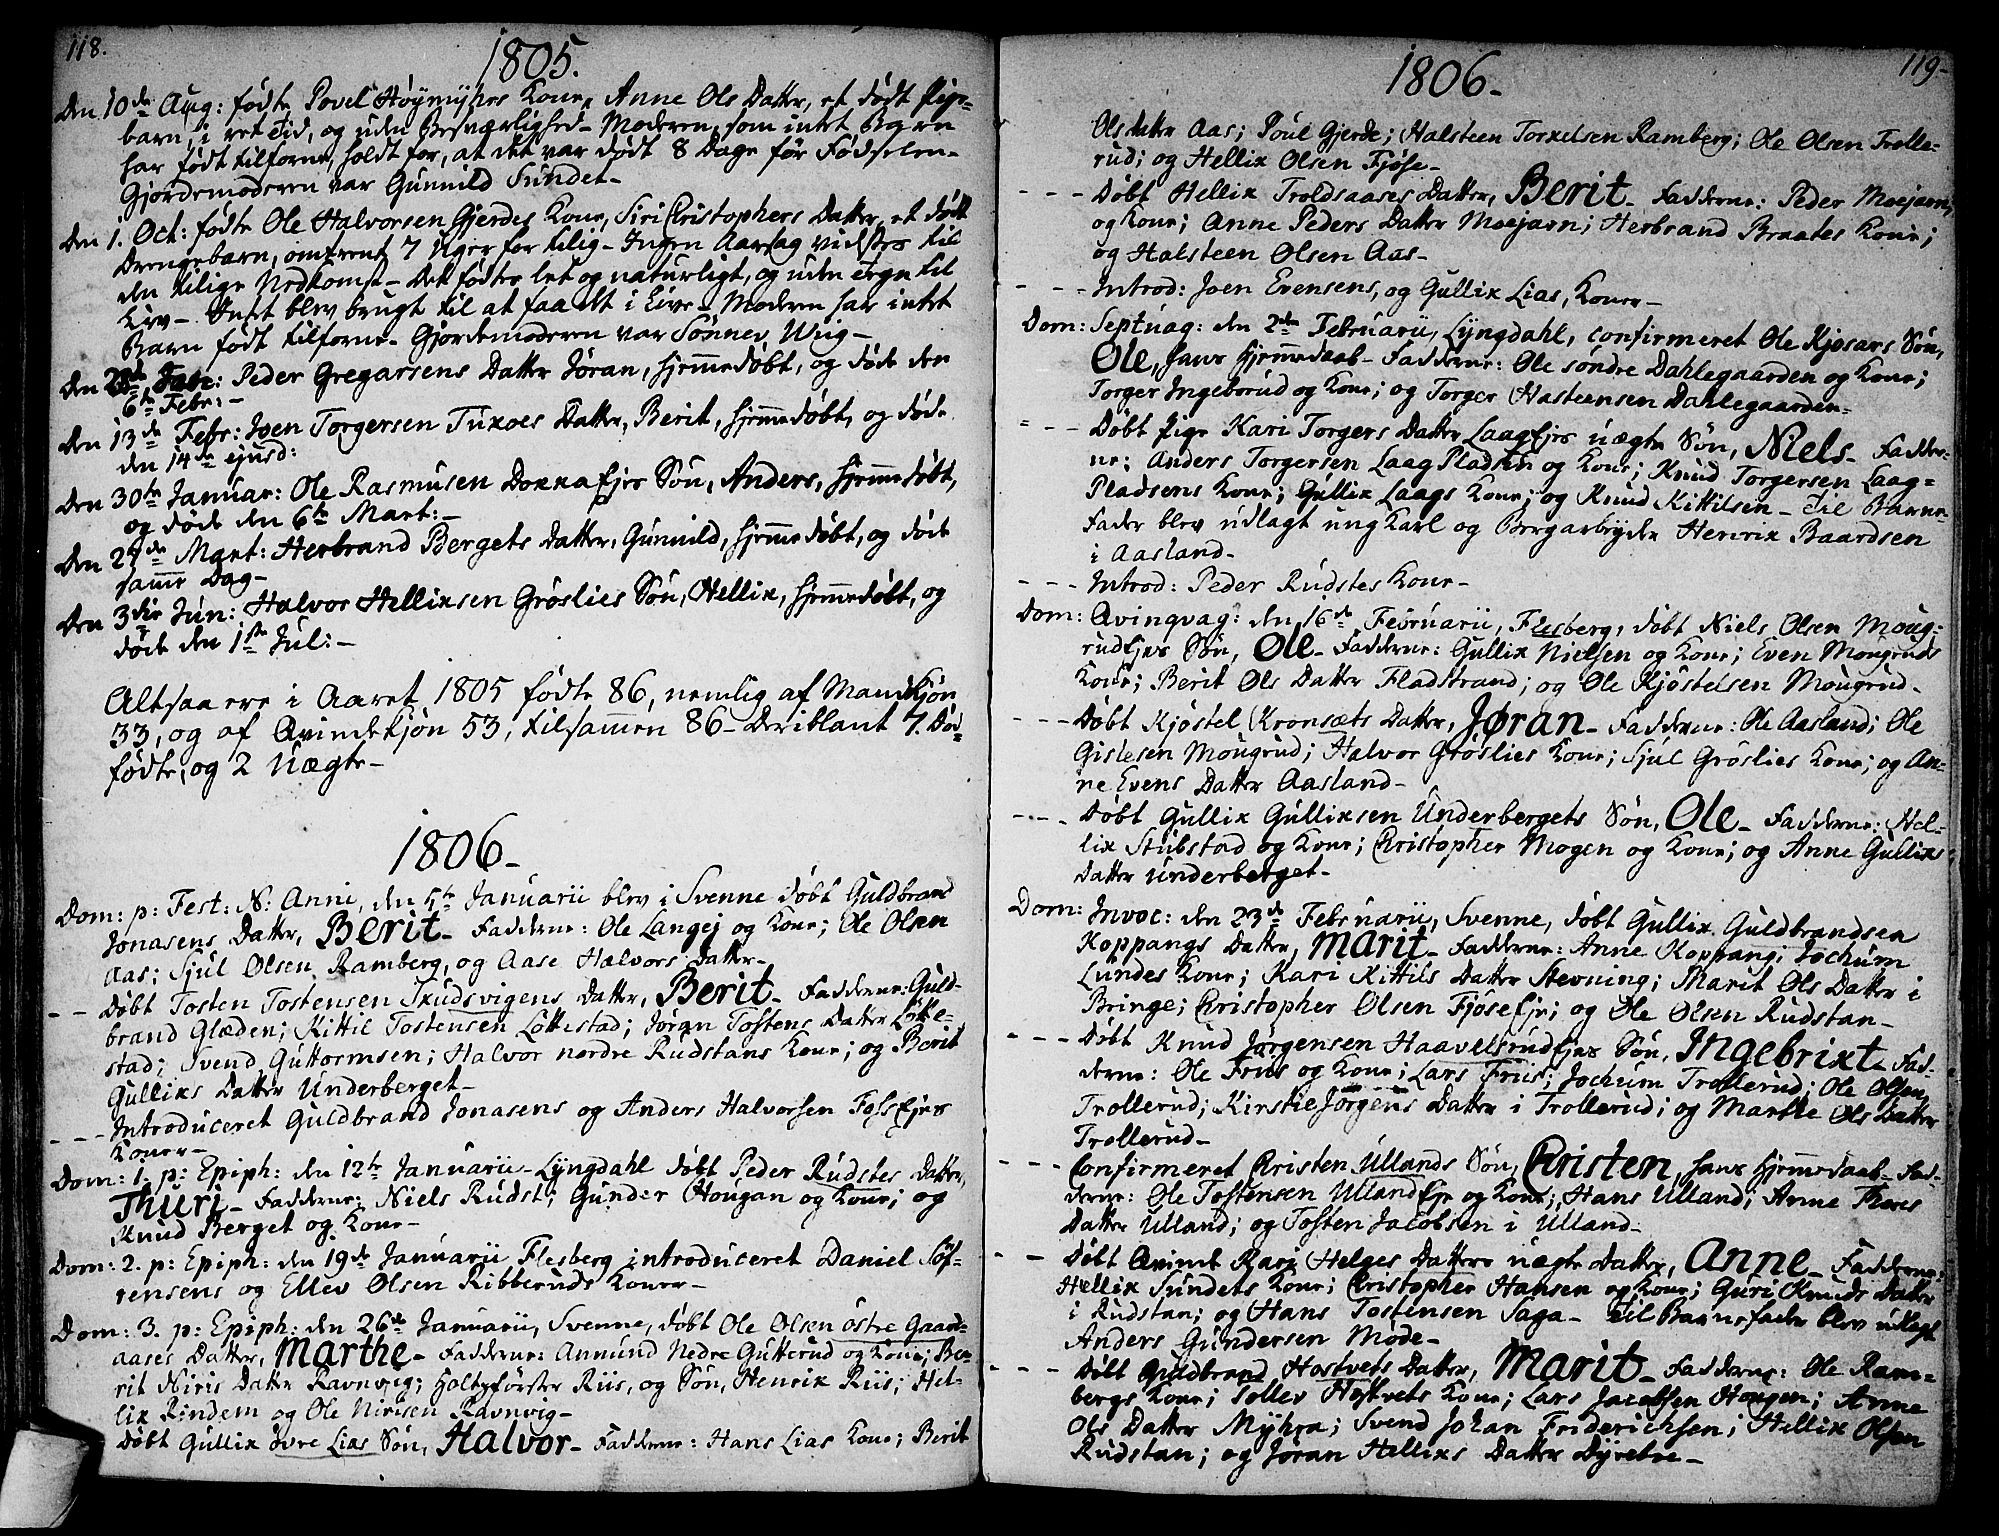 118.
1805.
Den 10de Aug: fødte Povel Høymyhrs Kone, Anne Ols Datter, et dødt Pige-
barn, i ret Tid, og uden Besværlighed – Moderen, som intet Barn
har født tilforne, holdt for, at det var dødt 8 Dage før Fødselen –
Gjordemoderen var Gunnild Sundet –
Den 1. Oct: fødte Ole Halvorsen Gjerdes Kone, Siri Christophers Datter, et dødt
Drengebarn, omtrent 7 Uger for tilig – Ingen Aarsag vidstes til
den tilige Nedkomst – Det fødtes let og naturligt, og uden Tegn til
Liv – Intet blev brugt til at faa det i Live – Moderen har intet
Barn født tilforne – Gjordemoderen var Sønnev Wiig –
Den Peder Gregarsens Datter Jøran, hjemmedøbt, og døde den
6te Febr: –
Den 13de Febr: Joen Torgersen Tuxoes Datter, Berit, hjemmedøbt, og døde
den 14de ejusd:
Den 30te Januar: Ole Rasmusen Dokka Ejes Søn, Anders, hjemmedøbt,
og døde den 6te Mart: –
Den 27de Mart: Herbrand Bergets Datter, Gunnild, hjemmedøbt, og døde
samme Dag –
Den 3die Jun: Halvor Hellixsen Grøslies Søn, Hellix, hjemmedøbt, og
døde den 1ste Jul: –
Altsaa ere i Aaret 1805 fødte 86, nemlig af Mandkjøn
33, og af Qvindekjøn 53, tilsammen 86 – Deriblant 7 Død-
fødte, og 2 Uægte –
1806 –
Dom: p: Fest: N: Anni, den 5te Januarii blev i Svenne døbt Guldbrand
Jonasens Datter, Berit – Fadderne: Ole Langej og Kone; Ole Olsen
Aas; Sjul Olsen Ramberg, og Aase Halvors Datter –
– – Døbt Tosten Tostensen Skudsvigens Datter, Berit – Fadderne: Guld-
brand Glæden; Kittil Tostensen Løttestad; Jøran Tostens Datter Løtte-
stad; Svend Guttormsen; Halvor nordre Rudstans Kone; og Berit
Gullixs Datter Underberget –
– – – Introduceret Guldbrand Jonasens og Anders Halvorsen Foss Ejes
Koner –
Dom: 1. p: Epiph: den 12te Januarii – Lyngdahl døbt Peder Rudstes Datter,
Thuri – Fadderne: Niels Rudst; Gunder Hougan og Kone; og
Knud Berget og Kone –
Dom: 2. p: Epiph: den 19de Januarii Flesberg introduceret Daniel Søf-
rensens og Ellev Olsen Ribberuds Koner –
Dom: 3. p: Epiph: den 26de Januarii, Svenne, døbt Ole Olsen østre Gaard-
aases Datter, Marthe – Fadderne: Annund Nedre Gutterud og Kone; Be-
rit Niris Datter Ravnvig; Holtzførster Riis, og Søn, Henrik Riis; Hel-
lix Rindem og Ole Nirisen Ravnvig –
Døbt Gullix øvre Lias Søn, Halvor – Fadderne: Hans Lias Kone; Berit
119 –
1806 –
Olsdatter Aas; Poul Gjerde; Halsteen Torkelsen Ramberg; Ole Olsen Trolle-
rud; og Hellix Olsen Fjøse –
– – – Døbt Hellix Troldsaases Datter, Berit – Fadderne: Peder Moejarn,
og Kone; Anne Peders Datter Moejarn; Herbrand Braates Kone;
og Halsteen Olsen Aas –
– – – Introd: Joen Evensens, og Gullix Lias, Koner –
Dom: Septuag: den 2den Februarii, Lyngdahl, confirmeret Ole Kjøsars Søn,
Ole, hans Hjemmedaab – Fadderne: Ole søndre Dahlegaarden og Kone;
Torger Ingeborud og Kone; og Torger Hasteensen Dahlegaarden –
– – – Døbt Pige Kari Torgers Datter Laag Ejes uægte Søn, Niels – Fadder-
ne: Anders Torgersen Laag Pladsen og Kone; Knud Torgersen Laag-
Pladsens Kone; Gullix Laags Kone; og Knud Kittilsen – Til Barne-
Fader blev udlagt ungKarl og Bergarbeyder Henrix Baardsen
i Aasland –
– – – Introd: Peder Rudstes Kone –
Dom: Qvinqvag: den 16de Februarii, Flesberg, døbt Niels Olsen Moug-
rud Ejes Søn, Ole – Fadderne: Gullix Nielsen og Kone; Even Mougruds
Kone; Berit Ols Datter Fladstrand; og Ole Kjøstelsen Mougrud –
– – – Døbt Kjøstel Kronsæts Datter, Jøran – Fadderne: Ole Aasland; Ole
Gislesen Mougrud; Halvor Grøslies Kone; Sjul Grøslies Kone; og An-
ne Evens Datter Aasland –
– – – Døbt Gullix Gullixsen Underbergets Søn, Ole – Fadderne: Hel-
lix Stubstad og Kone; Christopher Mogen og Kone; og Anne Gullixs
Datter Underberget –
Dom: Invoc: den 23de Februarii, Svenne, døbt Gullix Guldbrandsen
Koppangs Datter, Marit – Fadderne: Anne Koppang; Jochum
Lundes Kone; Kari Kittils Datter Stevning; Marit Ols Datter i
Bringe; Christopher Olsen Fjøse Eje; og Ole Olsen Rudstan –
– – – Døbt Knud Jørgensen Haavelsrud Ejes Søn, Ingebrixt – Fad-
derne: Ole Friis og Kone; Lars Friis; Jochum Trollerud; Ole Olsen
Trollerud; Kirstie Jørgens Datter i Trollerud; og Marthe Ols Datter
Trollerud –
– – – Confirmeret Christen Ullands Søn, Christen, hans Hjemmedaab – Fad-
derne: Ole Tostensen Ulland Eje og Kone; Hans Ulland; Anne Thores
Datter Ulland; og Tosten Jacobsen i Ulland –
– – Døbt Qvinde Kari Helges Datters uægte Datter, Anne – Fadderne:
Hellix Sundets Kone; Christopher Hansen og Kone; Guri Knuds Datter
i Rudstan; og Hans Tostensen Saga – Til Barnefader blev udlagt
Anders Gundersen Mode –
– – – Døbt Guldbrand Hostvets Datter, Marit – Fadderne: Ole Ram-
bergs Kone; Tollev Hostvets Kone; Lars Jacobsen Hougen; Anne
Ols Datter Myhra; Svend Johan Friderichsen; Hellix Olsen
Rudstan; og Jøran Hellixs Datter Dyretse –